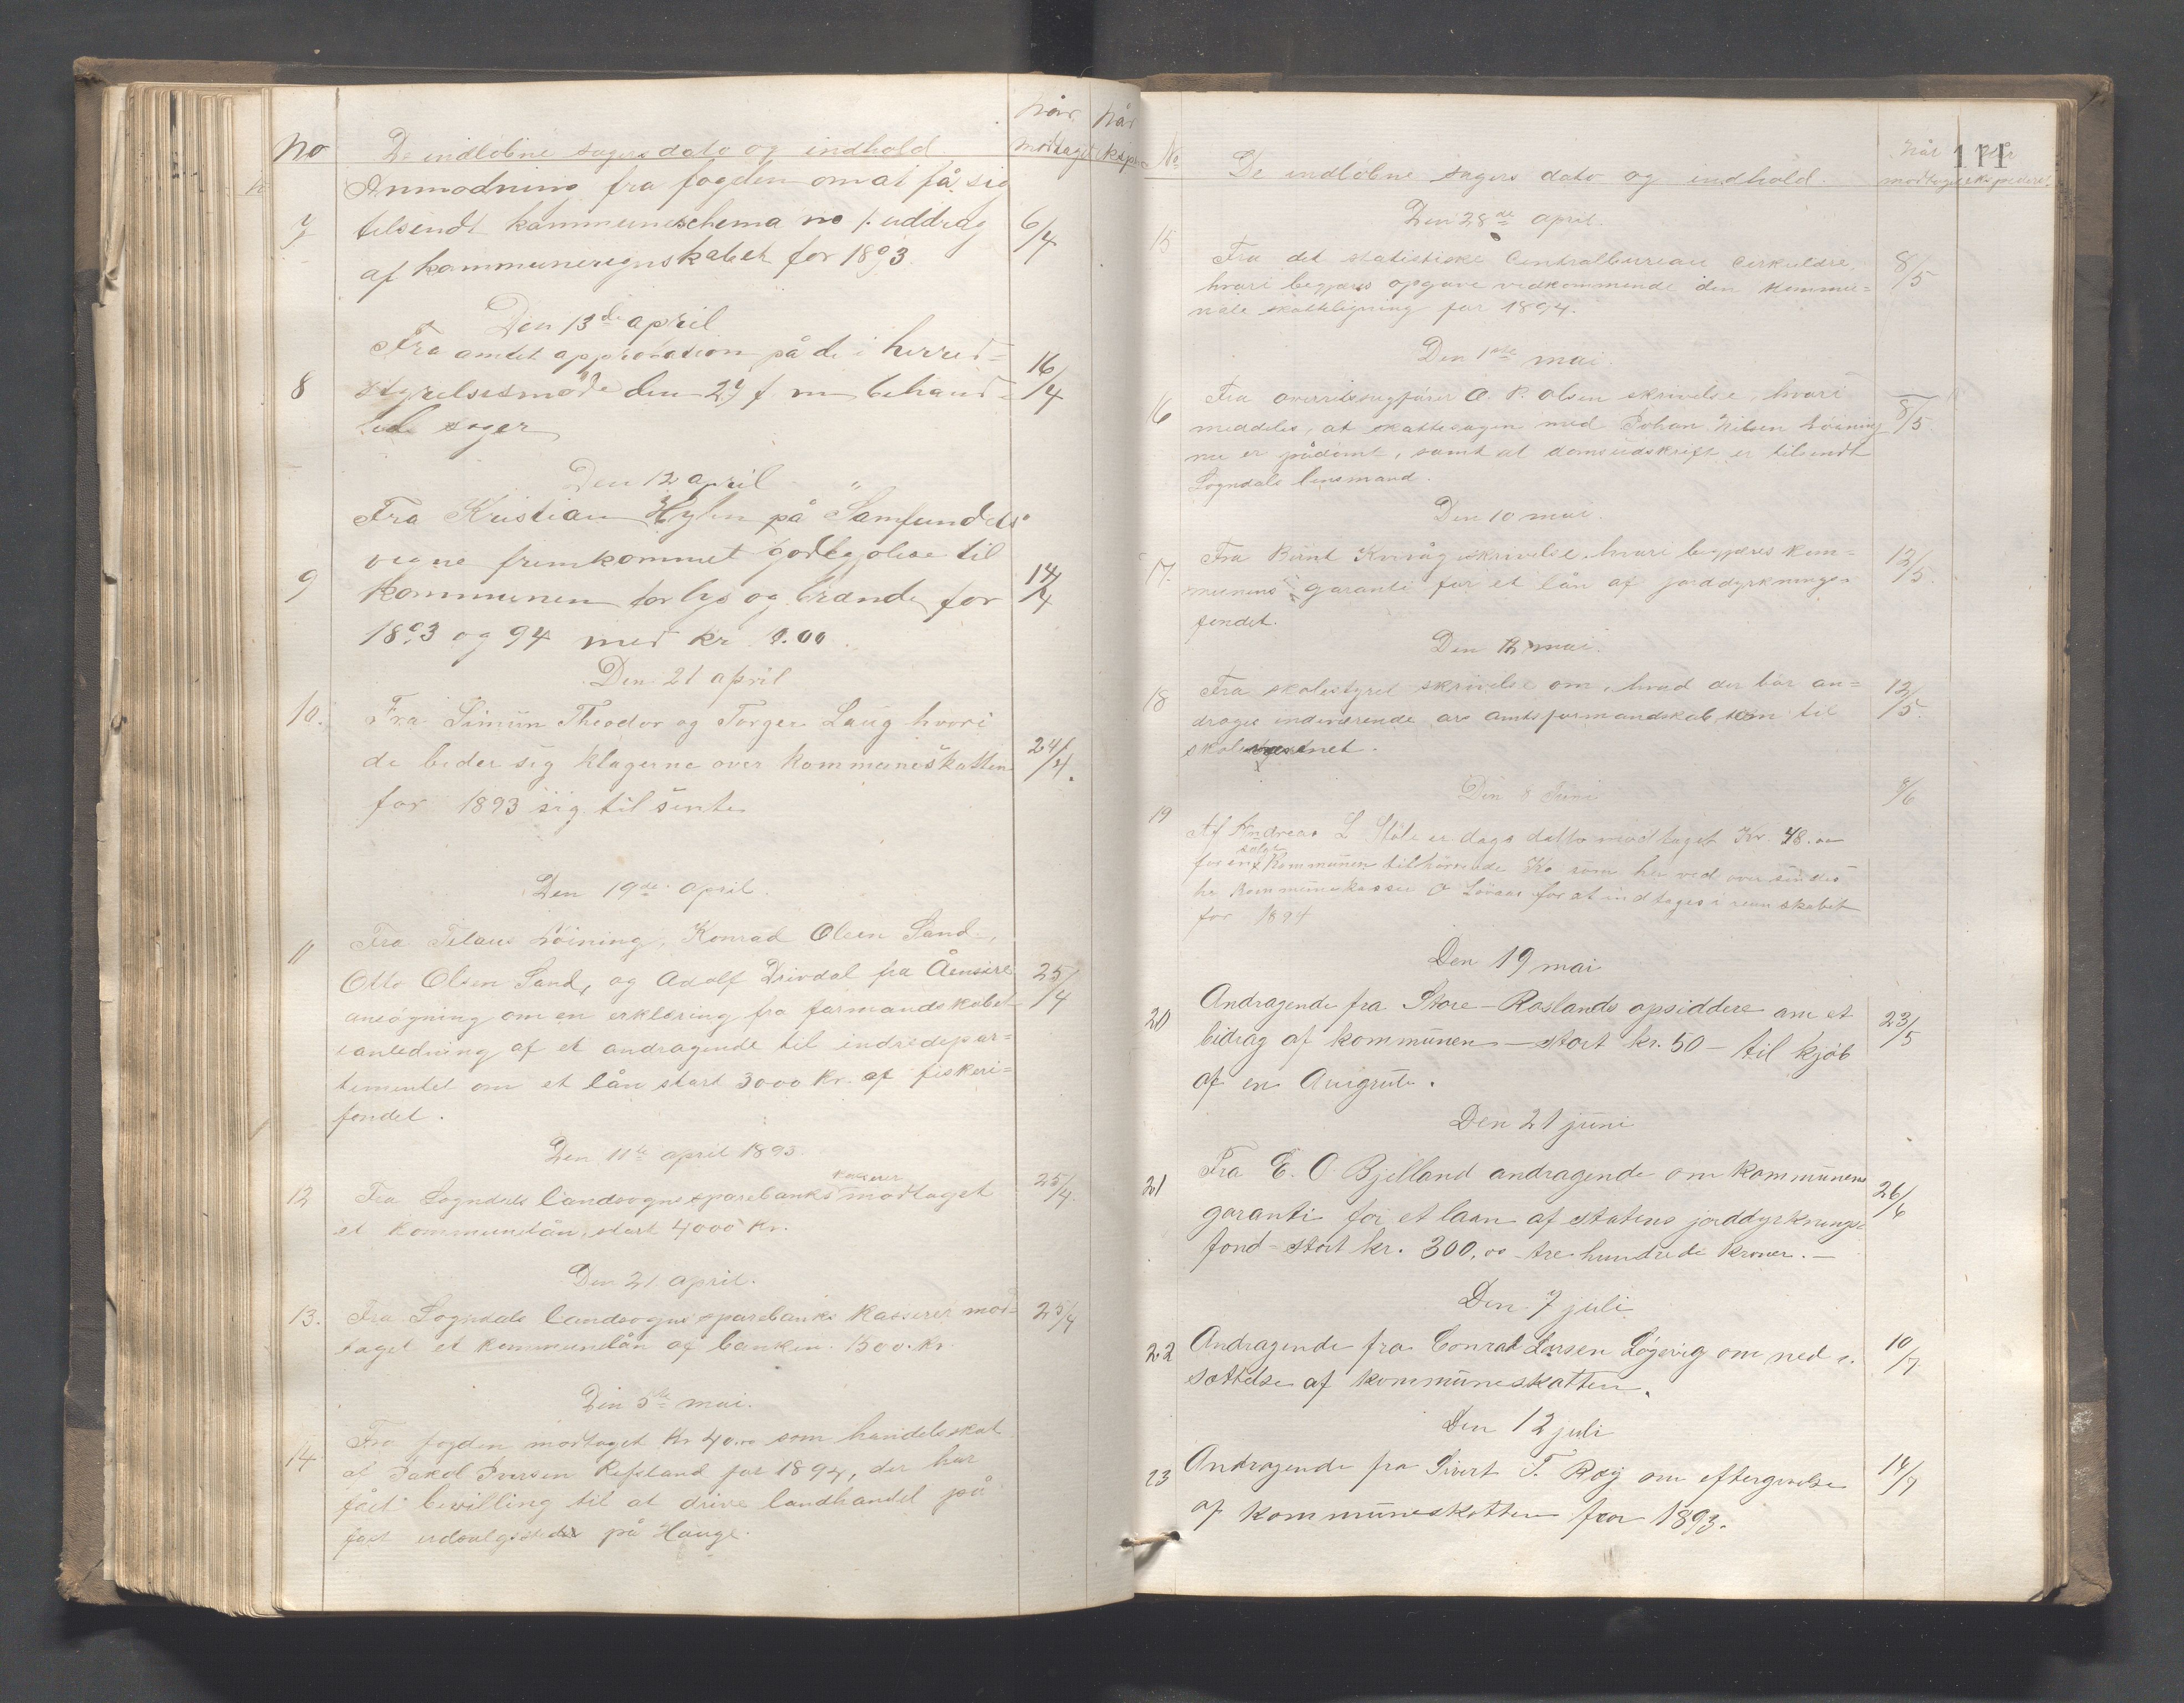 No De indløbne sagers dato og indhold Når modtaget Når eksp.
Anmodning fra fogden om at få sig
7 tilsendt kommuneschema no 1. uddrag 6/4
af kommuneregnskabet for 1893.
Den 13de april
Fra amtet approbation på de i herreds=
8 styrelsesmøde den 27 f m behand= 16/4
lede sager
Den 12 april
Fra Kristian Hylen på Samfundets
vegne fremkommet godtgjølese til
9 kommunen for lys og brænde for 14/4
1893 og 94 med kr
Den 21 april
10. Fra Simun Theodor og Torger Laug hvori
de beder sig klagerne over kommuneskatten 24/4.
for 1893 sig til sente
Den 19de april.
11 Fra Tilaus Løining, Konrad Olsen Sand,
Otto Olsen Sand, og Adolf Drivdal fra Åensire 25/4
ansøgning om en erklæring fra formandskabet
i anledning af et andragende til indredepar=
tementet om et lån stort 3000 kr. af fiskeri=
fondet.
Den 11te april 1893.
kasserer
12 Fra Sogndals landsogns sparebanks modtaget 25/4.
et kommunelån, stort 4000 kr.
Den 21. april.
13. Fra Sogndals landsogns sparebanks kasserer mod= 25/4
taget et kommunelån af banken. 1500. kr.
Den 5te mai.
Fra fogden modtaget kr 40.00 som handelsskat
14 af Jakob Iversen Refsland for 1894, der har
fået bevilling til at drive landhandel på
fast udsalgssted på Hauge.
111
No De indløbne sagers dato og indhold. Når modtaget Når ekspederet.
Den 28de april.
15 Fra det statistiske Centralbureau cerkulære, 8/5
hvori begjæres opgave vedkommende den kommu=
nale skatteligning for 1894.
Den 1ste mai.
Fra overretssagfører O. P. Olsen skrivelse, hvori
16 meddeles, at skattesagen med Johan Nilsen Løining 8/5.
nu er pådømt, samt at domsudskrift er tilsendt
Sogndals lensmand.
Den 10 mai.
17. Fra Bernt Kvivåg skrivelse, hvori begjæres kom= 12/5.
munens garanti for et lån af jorddyrknings=
fondet.
Den 12 mai.
18 Fra skolestyret skrivelse om, hvad der bør an= 12/5.
drages indeværende års amtsformandskab til
Den 8 Juni 8/6
19 Af Andreas L Støle er dags datto modtaget Kr. 48.00
solgt
for en Kommunen tilhørende Ko som her ved over sendes
hr kommunekasser O Løvaas for at ind tages i regnskabet
for 1894
Den 19 mai
20 Andragende fra Store-Roslands opsiddere om et 23/5
bidrag af kommunen - stort kr. 50 - til kjøb
af en
Den 21 juni
21 Fra E. O Bjelland andragende om kommunens 26/6
garanti for et laan af statens jorddyrknings=
fond - stort kr. 300,00 - tre hundrede kroner. -
Den 7 juli
22 Andragende fra Conrad Larsen Løgevig om ned = 10/7.
sættelse af kommuneskatten.
Den 12 juli
23 Andragende fra Sivert T. Røg om eftergivelse 14/7
af kommuneskatten for 1893.